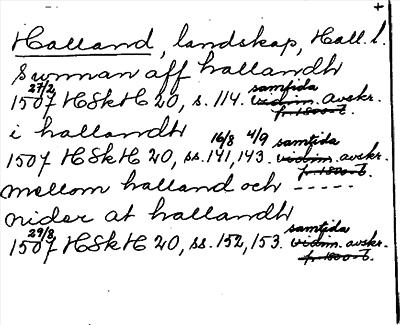 +
Halland, landskap, Hall. l.
Sunnan aff hallandh
27/2 samtida
1507 HSkH 20, s. 114. vidim. avskr.
fr. 1800-t.
i hallandh
16/8 4/9 samtida
1507 HSkH 20, ss. 141, 143. vidim. avskr.
fr. 1800-t.
mellom halland och -----
nider at hallandh
29/8 samtida
1507 HSkH 20, ss. 152, 153. vidim. avskr.
fr. 1800-t.